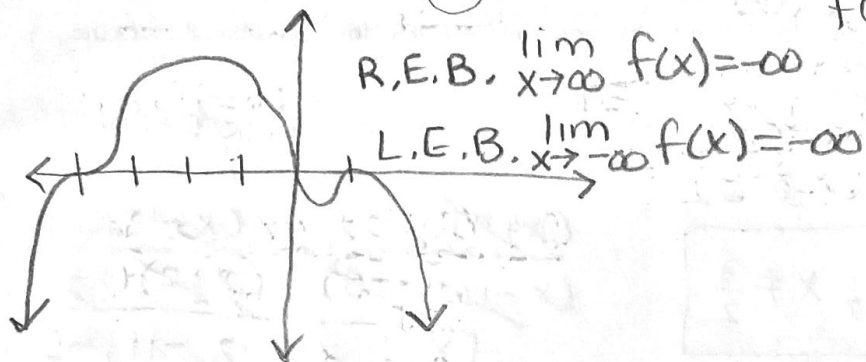 R.E.B. lim x→∞ f(x)=-∞
L.E.B. lim x→-∞ f(x)=-∞